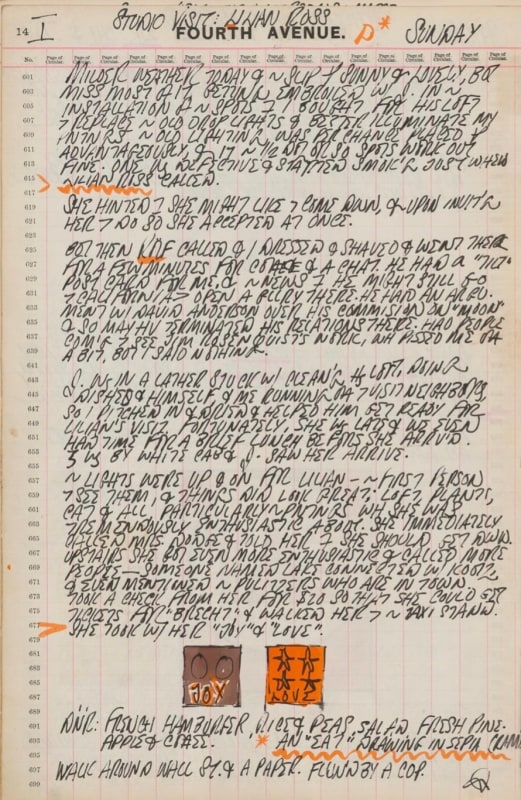 STUDIO VISIT: LILIAN ROSS
14 I FOURTH AVENUE. SUNDAY
No. Page of Circular. Page of Circular. Page of Circular. Page of Circular. Page of Circular. Page of Circular. Page of Circular. Page of Circular. Page of Circular. Page of Circular. Page of Circular. Page of Circular. Page of Circular.
601 MILDER WEATHER TODAY & ~ SUP SUNNY & LOVELY, BT
603 MISS MOST OF IT GETTING EMBROILED W/ IN ~
605 INSTALLATION OF ~ SPOTS I BOUGHT FOR HIS LOFT
607 REPLACE ~ OLD DROP LIGHTS & BETTER ILLUMINATE MY
609 PNTNGS ~ OLD LIGHTING WAS PERCHANCE PLACED
611 ADVANTAGEOUSLY & ~ 1/2 DOZ OR SO SPOTS WORK OUT
613 FINE. ONE IS DEFECTIVE & STARTED SMOK'G JUST WHEN
615 LILIAN ROSS CALLED.
617
619 SHE HINTED SHE MIGHT LIKE COME DOWN, & UPON INVIT'G
621 HER DO SO SHE ACCEPTED AT ONCE.
623
625 BT THEN CALLED & I DRESSED & SHAVED & WENT THERE
627 FOR A FEW MINUTES FOR COFFEE & A CHAT. HE HAD A "TILT"
629 POST CARD FOR ME & ~ NEWS HE MIGHT STILL GO
631 CALIFORNIA OPEN A GLLRY THERE. HE HAD AN ARGU-
633 MENT W/ DAVID ANDERSON OVER HIS COMMISION ON "MOON"
635 & SO MAY HV TERMINATED HIS RELATIONS THERE. HAD PEOPLE
637 COM'G SEE JIM ROSENQUIST'S WORK, WH PISSED ME OFF
639 A BIT, BT I SAID NOTHING.
641
643 J. WS IN A LATHER STUCK W/ CLEAN'G LOFT, DOING
645 DISHES & HIMSELF & ME RUNNING VISIT NEIGHBORS,
647 SO I PITCHED IN & DRIED & HELPED HIM GET READY FOR
649 LILIAN'S VISIT. FORTUNATELY, SHE WS LATE & WE EVEN
651 HAD TIME FOR A BRIEF LUNCH BEFORE SHE ARRIVED.
653 WS BY WHITE CAB & J. SAW HER ARRIVE.
655
657 ~ LIGHTS WERE UP & ON FOR LILIAN - ~ FIRST PERSON
659 SEE THEM, & THINGS DID LOOK GREAT: LOFT, PLANTS,
661 CAT & ALL, PARTICULARLY ~ PNTINGS WH SHE WAS
663 TREMENDOUSLY ENTHUSIASTIC ABOUT. SHE IMMEDIATELY
665 CALLED & TOLD HER SHE SHOULD GET DWN.
667 UPSTAIRS SHE GOT EVEN MORE ENTHUSIASTIC & CALLED MORE
669 PEOPLE — SOMEONE NAMED LAKE CONNECTED W/ KOOTZ
671 & EVEN MENTIONED ~ PULITZERS WHO ARE IN TOWN.
673 TOOK A CHECK FROM HER FOR $20 SO THAT SHE COULD GET
675 TICKETS FOR "BRECHT" & WALKED HER ~ TAXI STAND.
677 SHE TOOK W/ HER "JOY" & "LOVE".
679
681
683
685 JOY LOVE
687
689
691 DNR: FRENCH HAMBURGER, RICE & PEAS, SALAD, FRESH PINE-
693 APPLE & * AN "EAT" DRAWING IN SEPIA
695
697 WALK AROUND WALL ST. & A PAPER. FLWD BY A COP.
699